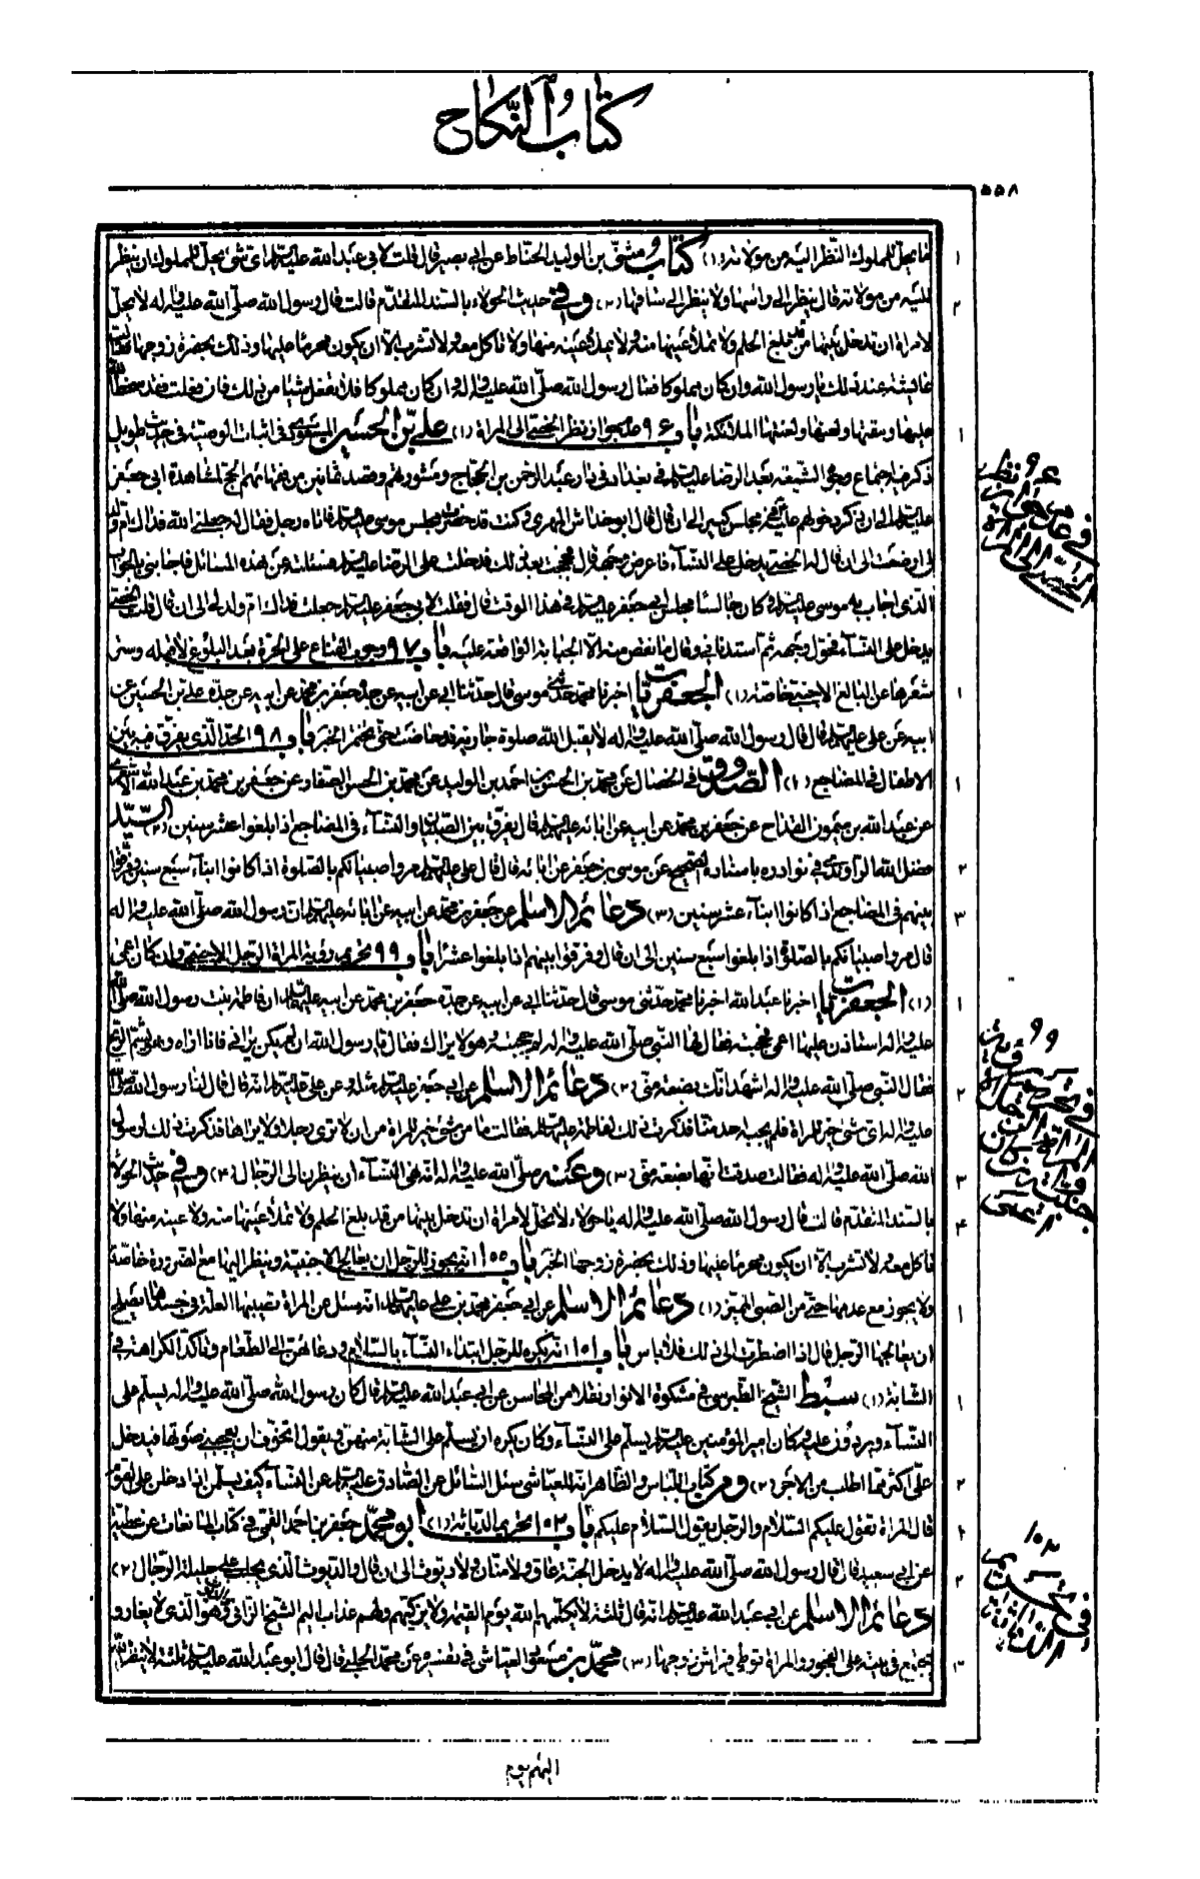 كتاب النكاح
٥٥٨
ما يحل للمملوك النظر اليه من مولاته (١) كتاب مثنى بن الوليد الحناط عن ابى بصير قال قلت لابى عبد الله عليه السلام اى شئ يحل للمملوك ان ينظر
اليه من مولاته قال ينظر الى راسها ولا ينظر الى ساقها (٢) وفى حديث الحولاء بالسند المتقدم قالت قال رسول الله صلى الله عليه واله لا يحل
لامراة ان تدخل بيتها من قد بلغ الحلم ولا تملأ عينها منه ولا يملأ عينه منها ولا تاكل معه ولا تشرب الا ان يكون محرما عليها وذلك بحضرة زوجها فقالت
عايشة عند ذلك يا رسول الله وان كان مملوكا فقال رسول الله صلى الله عليه واله وان كان مملوكا فلا تفعل شيئا من ذلك فان فعلت فقد سخط الله
عليها ومقتها ولعنها ولعنتها الملائكة باب ٩٦ عدم جواز نظر الخصى الى المراة (١) على بن الحسين المسعودى فى اثبات الوصية فى حديث طويل
ذكر فيه اجتماع وجوه الشيعة بعد الرضا عليه السلام فى بغداد فى دار عبد الرحمن بن الحجاج ومشورتهم وقصد ثمانين من فقهائهم الحج لمشاهدة ابى جعفر
عليه السلام الى ان ذكر دخولهم عليه فى مجلس كبير الى ان قال قال ابو خداش المهرى وكنت قد حضرت مجلس موسى عليه السلام فاتاه رجل فقال له جعلنى الله فداك ام ولد
لى ارضعت الى ان قال له الخصى يدخل على النساء فاعرض بوجهه قال فحججت بعد ذلك فدخلت على الرضا عليه السلام فسئلت عن هذه المسائل فاجابنى بالجواب
الذى اجاب به موسى عليه السلام وكان جالسا مجلس ابى جعفر عليه السلام فى هذا الوقت قال فقلت لابى جعفر عليه السلام جعلت فداك ام ولد لى الى ان قال قلت الخصى
يدخل على النساء فحول وجهه ثم استدنانى وقال ما نقص منه الا الجناية الواقعة عليه باب ٩٧ وجوب القناع على الحرة بعد البلوغ لا قبله وستر
شعرها عن البالغ الاجنبى خاصة (١) الجعفريات اخبرنا محمد حدثنى موسى قال حدثنا ابى عن ابيه عن جده جعفر بن محمد عن ابيه عن جده على بن الحسين عن
ابيه عن على عليه السلام قال قال رسول الله صلى الله عليه واله لا يقبل الله صلوة جارية قد حاضت حتى تختمر الخبر باب ٩٨ الحد الذى يفرق فيه بين
الاطفال فى المضاجع (١) الصدوق فى الخصال عن محمد بن الحسن بن احمد بن الوليد عن محمد بن الحسن الصفار عن جعفر بن محمد بن عبد الله الاشعرى
عن عبد الله بن ميمون القداح عن جعفر بن محمد عن ابيه عن ابائه عليهم السلام قال يفرق بين الصبيان والنساء فى المضاجع اذا بلغوا عشر سنين (٢) السيد
فضل الله الراوندى فى نوادره باسناده الصحيح عن موسى بن جعفر عن ابائه قال قال على عليه السلام مروا صبيانكم بالصلوة اذا كانوا ابناء سبع سنين وفرقوا
بينهم فى المضاجع اذا كانوا ابناء عشر سنين (٣) دعائم الاسلام عن جعفر بن محمد عن ابيه عن ابائه عليهم السلام ان رسول الله صلى الله عليه واله
قال مروا صبيانكم بالصلوة اذا بلغوا سبع سنين الى ان قال وفرقوا بينهم اذا بلغوا عشرا باب ٩٩ تحريم رؤية المراة الرجل الاجنبى وان كان اعمى
(١) الجعفريات اخبرنا عبد الله اخبرنا محمد حدثنى موسى قال حدثنا ابى عن ابيه عن جده جعفر بن محمد عن ابيه عليهم السلام ان فاطمة بنت رسول الله صلى الله
عليه واله استاذن عليها اعمى فحجبته فقال لها النبى صلى الله عليه واله لم حجبته وهو لا يراك فقال يا رسول الله ان لم يكن يرانى فانا اراه وهو يشم الريح
فقال النبى صلى الله عليه واله اشهد انك بضعة منى (٢) دعائم الاسلام عن ابى جعفر عليه السلام مثله وعن على عليه السلام انه قال قال لنا رسول الله صلى الله
عليه واله اى شئ خير للمراة فلم يجبه احد منا فذكرت ذلك لفاطمة عليها السلام فقالت ما من شئ خير للمراة من ان لا ترى رجلا ولا يراها فذكرت ذلك لرسول
الله صلى الله عليه واله فقال صدقت انها بضعة منى (٣) وعنه صلى الله عليه واله انه نهى النساء ان ينظرن الى الرجال (٤) وفى حديث الحولاء
بالسند المتقدم قالت قال رسول الله صلى الله عليه واله يا حولاء لا يحل لامراة ان تدخل بيتها من قد بلغ الحلم ولا تملأ عينها منه ولا عينه منها ولا
تاكل معه ولا تشرب الا ان يكون محرما عليها وذلك بحضرة زوجها الخبر باب ١٠٠ انه يجوز للرجل ان يعالج الاجنبية وينظر اليها مع الضرورة خاصة
ولا يجوز مع عدمها حتى من الصبى المميز (١) دعائم الاسلام عن ابى جعفر محمد بن على عليه السلام انه سئل عن المراة تصيبها العلة فى جسدها ايصلح
ان يعالجها الرجل قال اذا اضطرت الى ذلك فلا باس باب ١٠١ انه يكره للرجل ابتداء النساء بالسلام ودعائهن الى الطعام وتاكد الكراهة فى
الشابة (١) سبط الشيخ الطبرسى فى مشكوة الانوار نقلا من المحاسن عن ابى عبد الله عليه السلام قال كان رسول الله صلى الله عليه واله يسلم على
النساء ويرددن عليه وكان امير المؤمنين عليه السلام يسلم على النساء وكان يكره ان يسلم على الشابة منهن ويقول اتخوف ان يعجبنى صوتها فيدخل
على اكثر مما اطلب من الاجر (٢) ومن كتاب اللباس والظاهر انه للعياشى سئل السائل عن الصادق عليه السلام عن النساء كيف يسلمن اذا دخلن على القوم
قال المراة تقول عليكم السلام والرجل يقول السلام عليكم باب ١٠٢ تحريم الدياثة (١) ابو محمد جعفر بن احمد القمى فى كتاب المانعات عن عطية
عن ابى سعيد قال قال رسول الله صلى الله عليه واله لا يدخل الجنة عاق ولا منان ولا ديوث الى ان قال والديوث الذى يجلب على حليلة الرجال (٢)
دعائم الاسلام عن ابى عبد الله عليه السلام انه قال ثلثة لا يكلمهم الله يوم القيمة ولا يزكيهم ولهم عذاب اليم الشيخ الزانى والديوث وهو الذى لا يغار و
يجتمع فى بيته على الفجور والمراة توطى فراش زوجها (٣) محمد بن مسعود العياشى فى تفسيره عن محمد الحلبى قال قال ابو عبد الله عليه السلام ثلثة لا ينظر الله
اليهم يوم
٩٦
فى عدم جواز نظر
الخصى الى المراة
٩٩
فى تحريم رؤية
المراة الرجال
الاجنبى وان كان
اعمى
١٠٢
فى تحريم
الدياثة